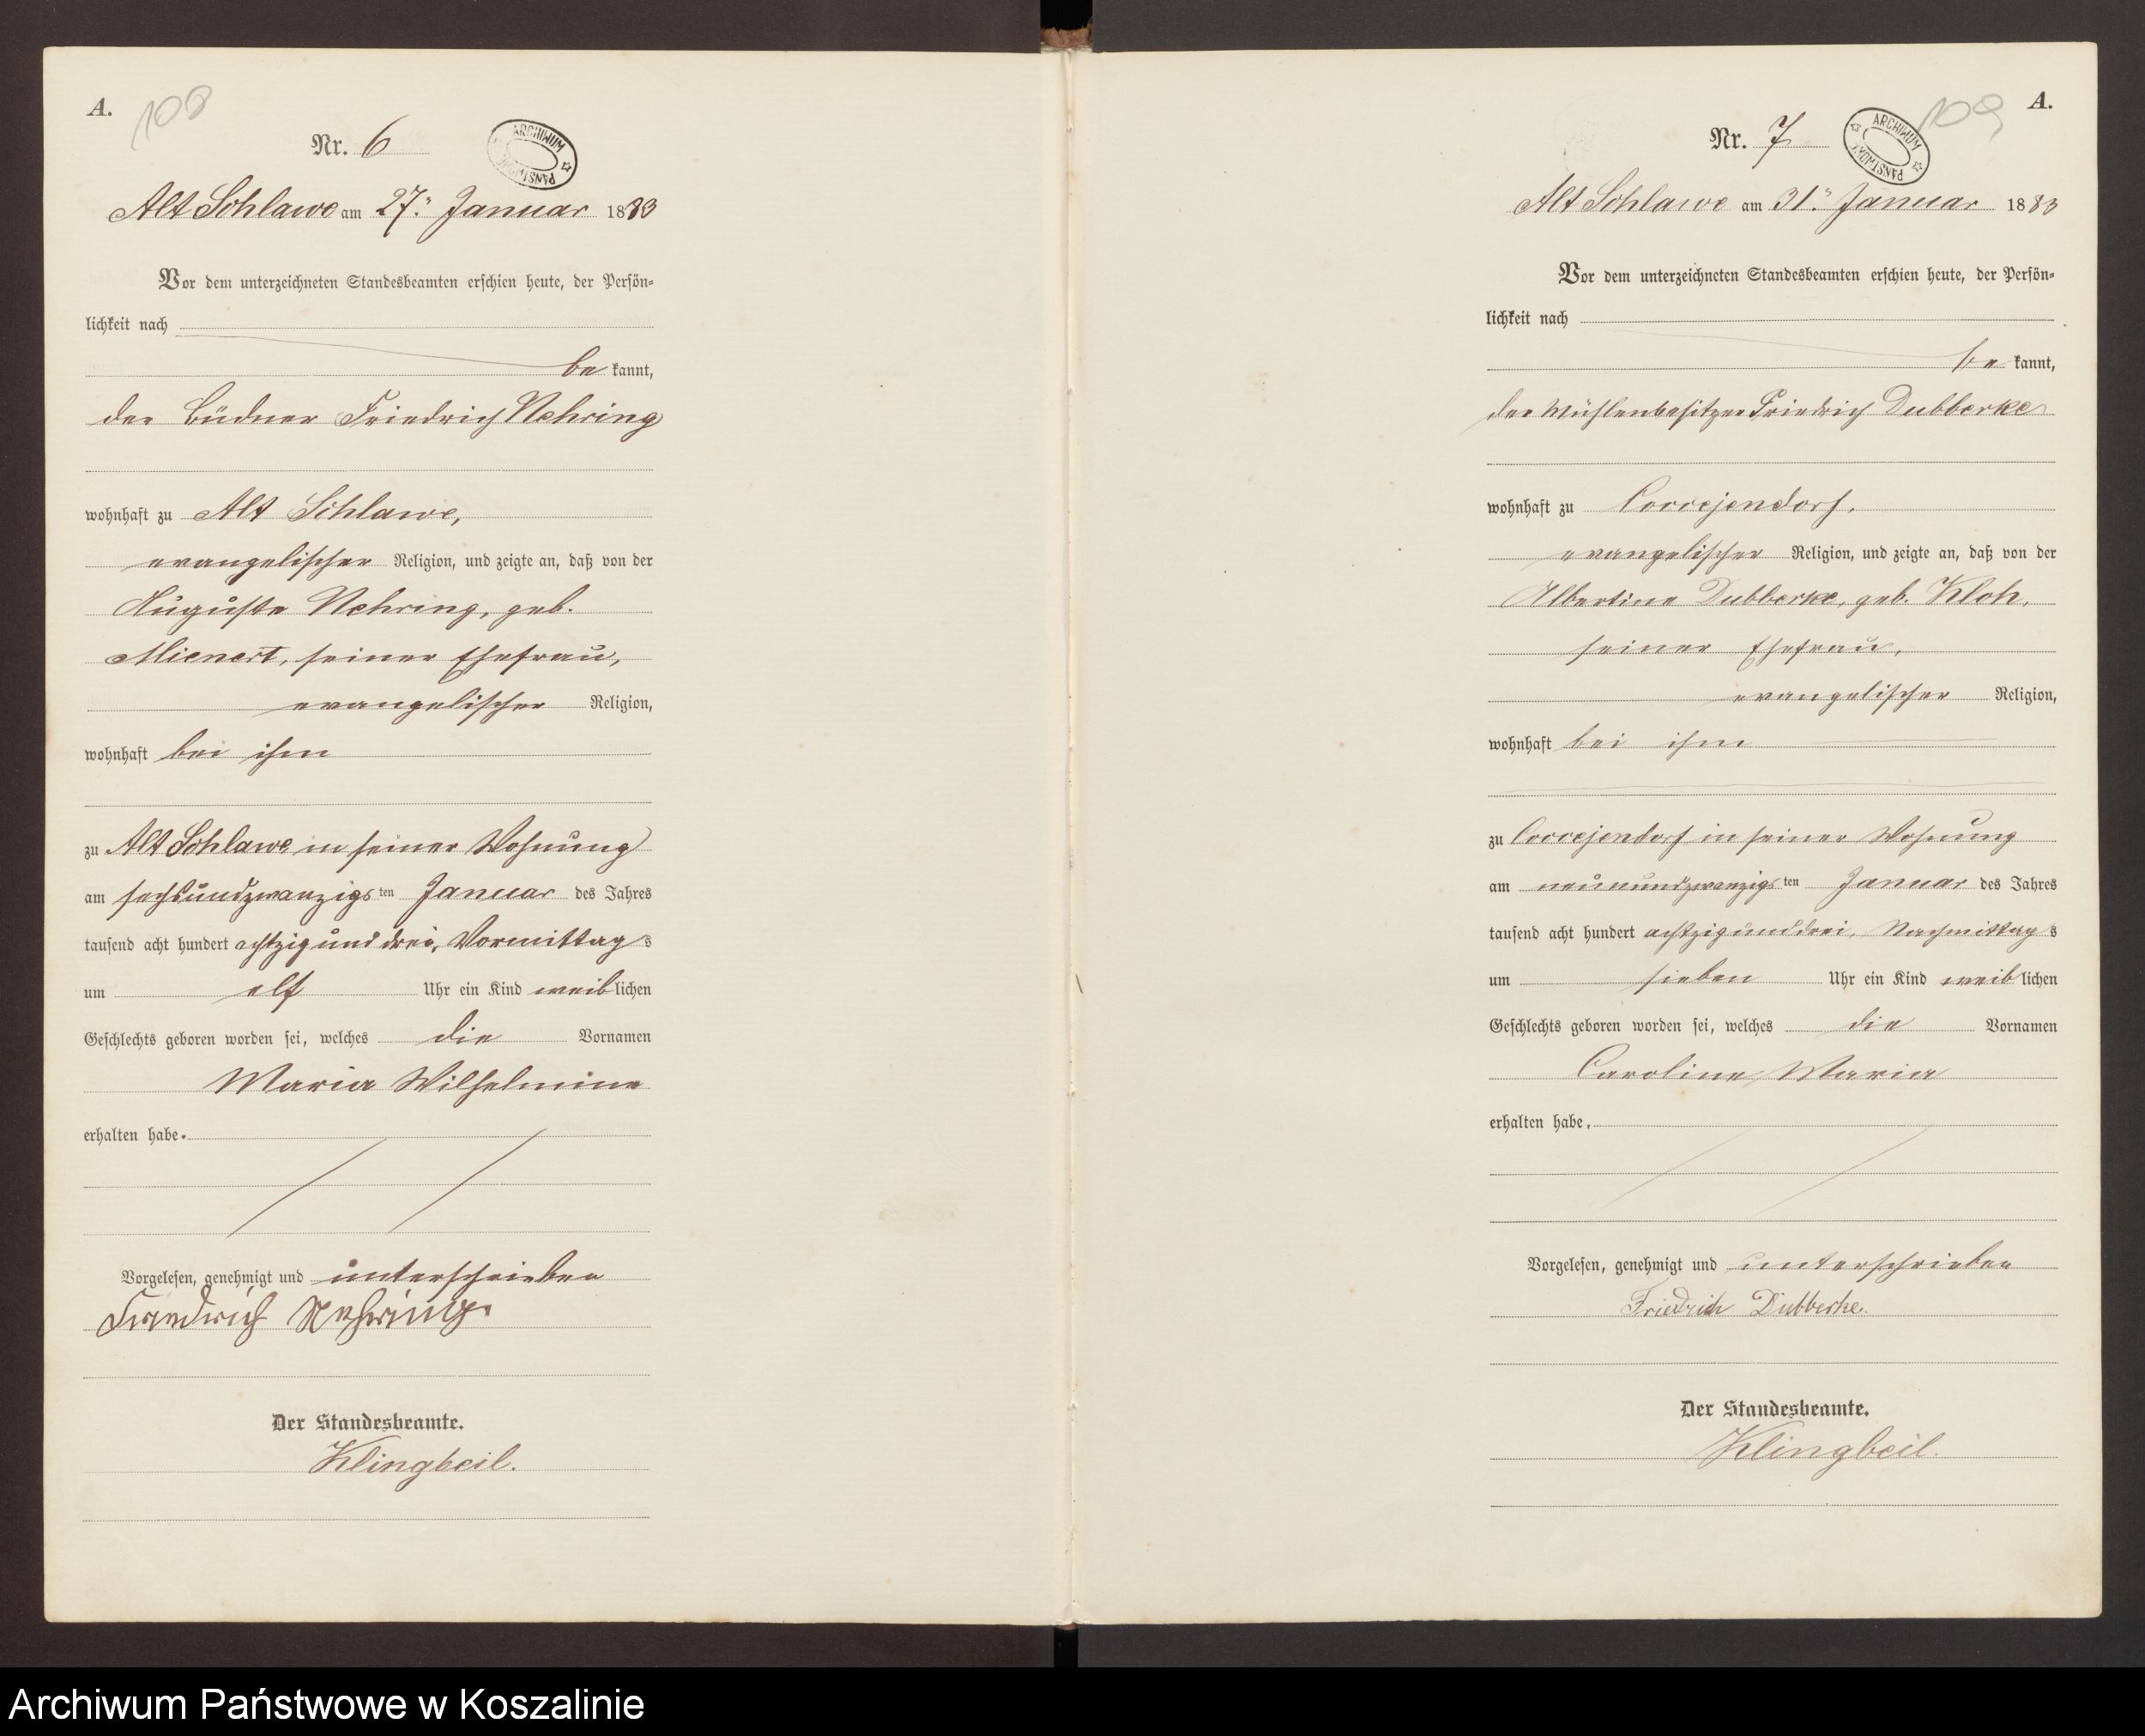 A.
108
Nr. 6
ARCHIWUM
PAŃSTWOWE
Alt Schlawe am 27. Januar 1883
Vor dem unterzeichneten Standesbeamten erschien heute, der Persön-
lichkeit nach
be kannt,
der Büdner Friedrich Nehring
wohnhaft zu Alt Schlawe,
evangelischer Religion, und zeigte an, daß von der
Auguste Nehring, geb.
Mienert, seiner Ehefrau,
evangelischer Religion,
wohnhaft bei ihm
zu Alt Schlawe in seiner Wohnung
am sechsundzwanzigs ten Januar des Jahres
tausend acht hundert achtzig und drei, Vormittag s
um elf Uhr ein Kind weib lichen
Geschlechts geboren worden sei, welches die Vornamen
Maria Wilhelmine
erhalten habe.
Vorgelesen, genehmigt und unterschrieben
Friedrich Nehring.
Der Standesbeamte.
Klingbeil.
A.
109
Nr. 7
ARCHIWUM
PAŃSTWOWE
Alt Schlawe am 31. Januar 1883
Vor dem unterzeichneten Standesbeamten erschien heute, der Persön-
lichkeit nach
be kannt,
der Mühlenbesitzer Friedrich Dubberke
wohnhaft zu Coccejendorf,
evangelischer Religion, und zeigte an, daß von der
Albertine Dubberke, geb. Kloh,
seiner Ehefrau,
evangelischer Religion,
wohnhaft bei ihm
zu Coccejendorf in seiner Wohnung
am neunundzwanzigs ten Januar des Jahres
tausend acht hundert achtzig und drei, Nachmittag s
um sieben Uhr ein Kind weib lichen
Geschlechts geboren worden sei, welches die Vornamen
Caroline Maria
erhalten habe.
Vorgelesen, genehmigt und unterschrieben
Friedrich Dubberke.
Der Standesbeamte.
Klingbeil.
Archiwum Państwowe w Koszalinie